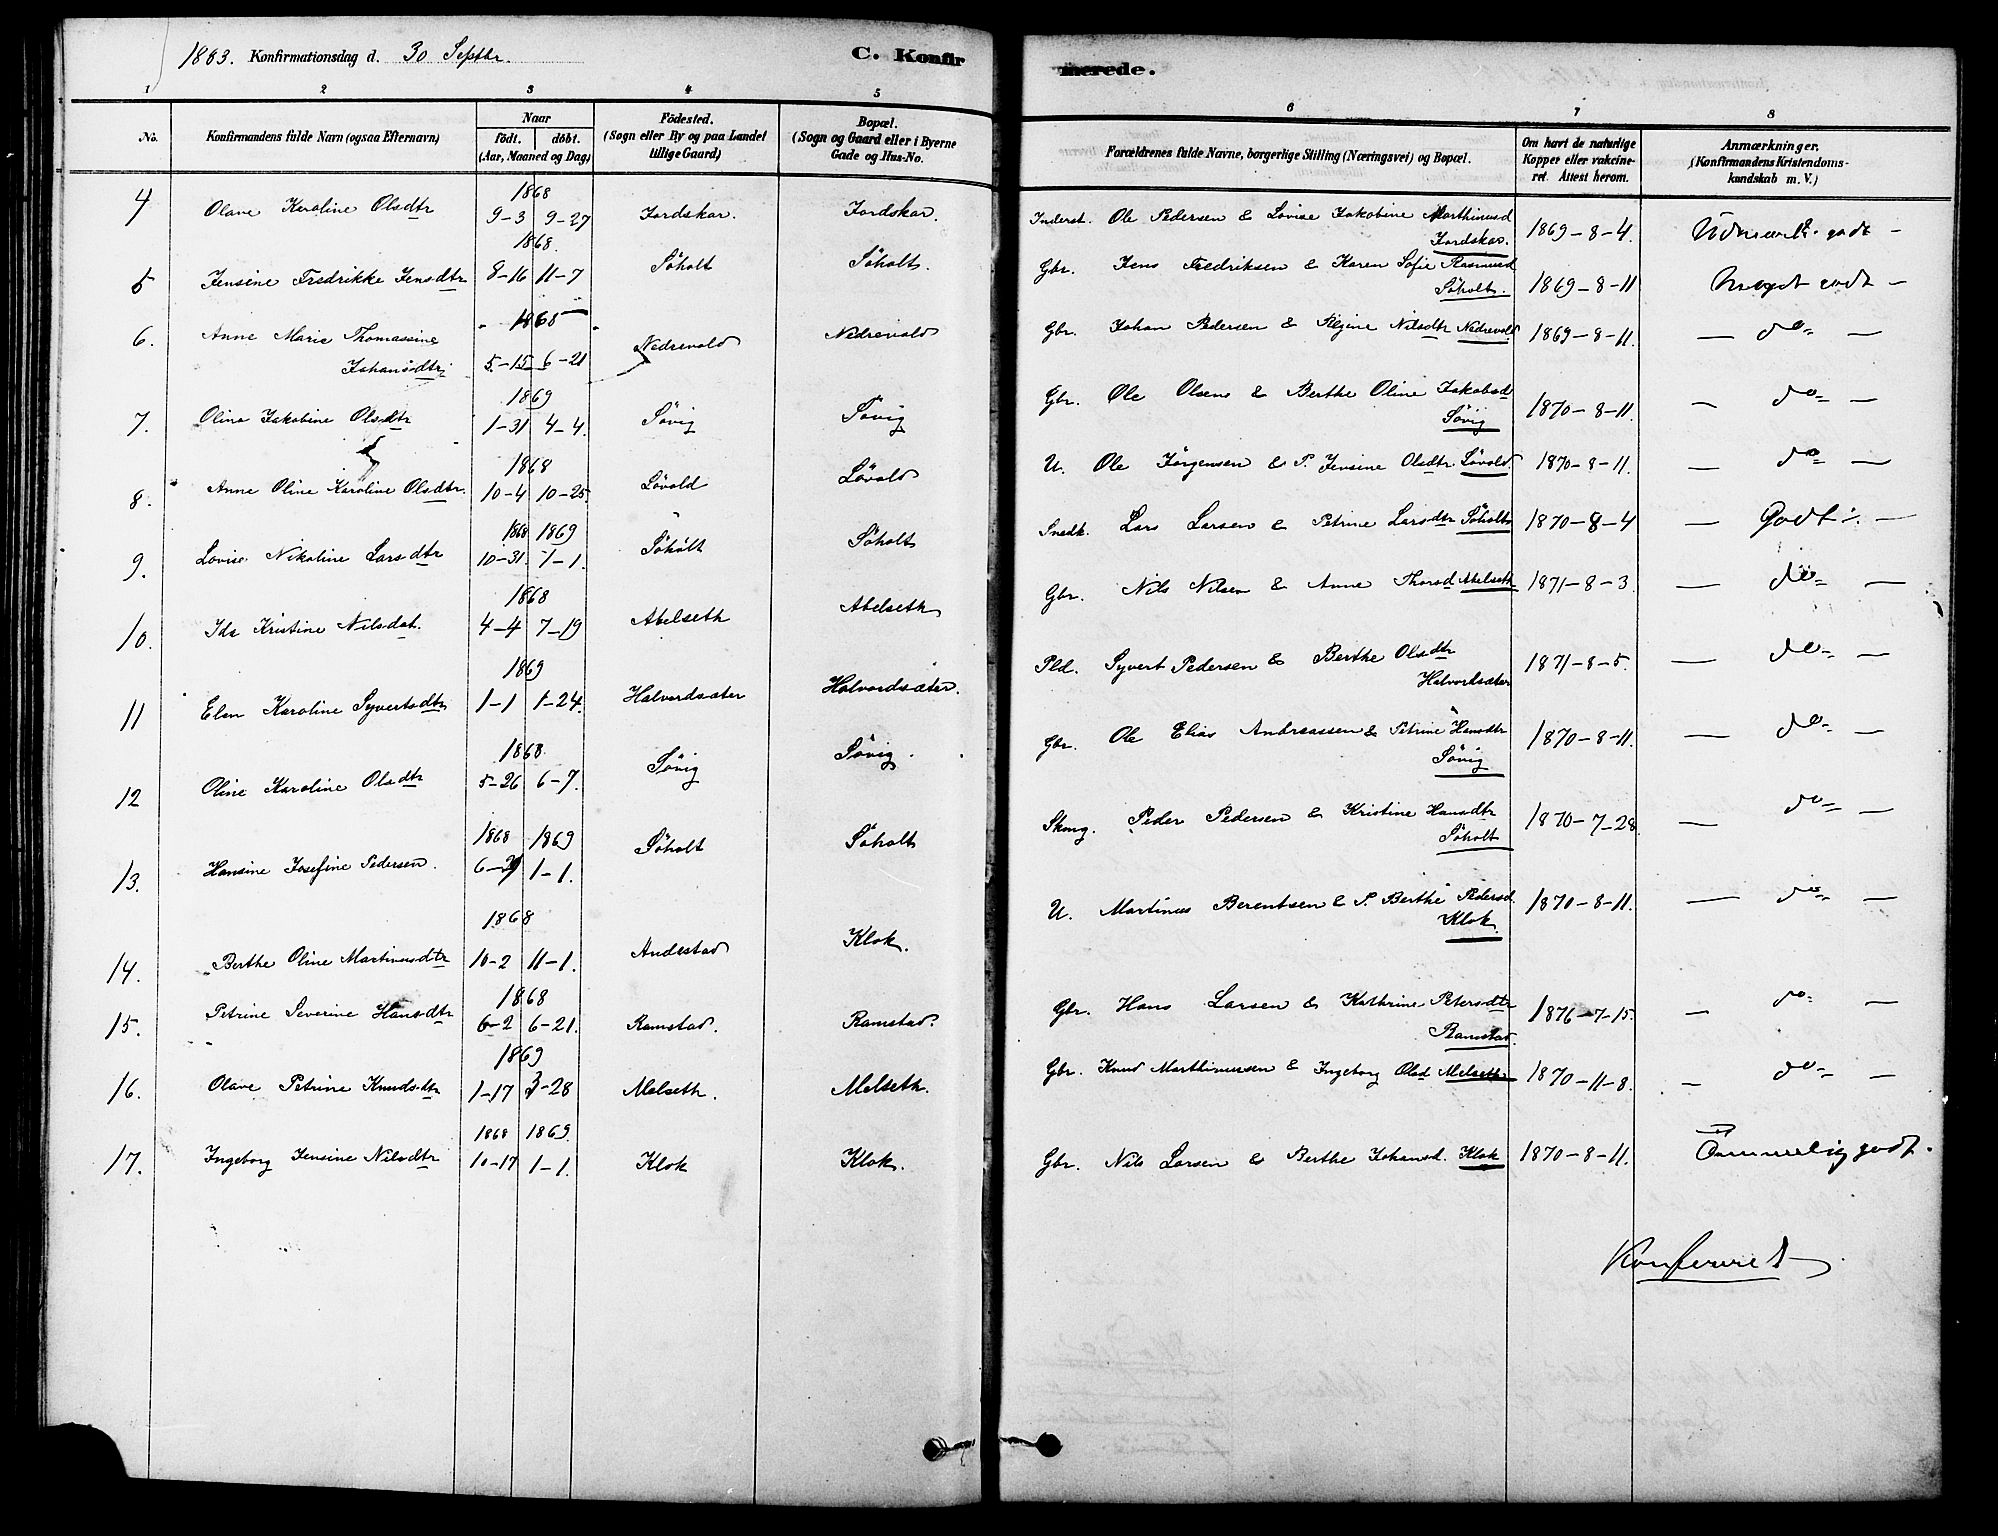 1883. Konfirmationsdag d. 30 Septbr.
C. Konfirmerede.
1 2 3 4 5 6 7 8
No.
Konfirmandens fulde Navn (ogsaa Efternavn)
Naar
födt. döbt.
(Aar, Maaned og Dag)
Födested.
(Sogn eller By og paa Landet
tillige Gaard)
Bopæl.
(Sogn og Gaard eller i Byerne
Gade og Hus-No.
Forældrenes fulde Navne, borgerlige Stilling (Næringsvei) og Bopæl.
Om havt de naturlige
Kopper eller vakcine-
ret. Attest herom.
Anmærkninger.
(Konfirmandens Kristendoms-
kundskab m. V.)
1868
4 Olave Karoline Olsdtr 9-3 9-27 Jordskar. Jordskar. Inderst. Ole Pedersen & Lovise Jakobine Marthinusd
Jordskar. 1869-8-4. godt -
1868.
5 Jensine Fredrikke Jensdtr 8-16 11-7 Söholt Söholt. Gbr. Jens Fredriksen & Karen Sofie Rasmusd
Söholt. 1869-8-11 Meget godt -
1868
6. Anne Marie Thomassine
Johansdtr 5-15 6-21 Nedrevold Nedrevold Gbr. Johan Pedersen & Nilsdtr Nedrevold 1869-8-11. — do — 
1869
7. Olina Jakobine Olsdtr 1-31 4-4. Sövig Sövig Gbr. Ole Olsen & Berthe Oline Jakobsd
Sövig 1870-8-11. — do —
1868
8. Anne Oline Karoline Olsdtr. 10-4 10-25. Lövold Lövold U. Ole Jörgensen & P. Jensine Olsdtr Lövold 1870-8-11. — do —
1868 1869
9. Lovise Nikoline Larsdtr 10-31. 1-1. Söholt Söholt Snedk. Lars Larsen & Petrine Larsdtr Söholt 1870-8-4 — Godt —
1868
10. Ida Kristine Nilsdat. 4-4 7-19 Abelseth Abelseth Gbr. Nils Nilsen & Anne Thorsd Abelseth 1871-8-3 — do —
1869
11 Elen Karoline Syvertsdtr 1-1 1-24. Halvordsæter Halvordsæter. Pld. Syvert Pedersen & Berthe Olsdtr
Halvordsæter 1871-8-5. — do —
1868
12 Oline Karoline Olsdtr 5-26 6-7. Sövig Sövig. Gbr. Ole Elias Andreassen & Petrine Hansdtr
Sövig 1870-8-11. — do —
1868 1869
13. Hansine Josefine Pedersen. 6-29 1-1. Söholt Söholt Peder Pedersen & Kristine Hansdtr
Söholt 1870-7-28. — do —
1868
14. Berthe Oline Martinusdtr 10-2 11-1. Andestad Klok. U. Martinus Berentsen & P. Berthe Pedersd.
Klok. 1870-8-11. — do —
1868
15. Petrine Severine Hansdtr 6-2 6-21. Ramstad. Ramstad. Gbr. Hans Larsen & Kathrine Petersdtr
Ramstad. 1876-7-15. — do —
1869
16. Olave Petrine Knudsdtr 1-17 3-28 Melseth. Melseth. Gbr. Knud Marthinussen & Ingeborg Olsd Melseth 1870-11-8. — do —
1868 1869.
17. Ingeborg Jensine Nilsdtr 10-17 1-1. Klok Klok. Gbr. Nils Larsen & Berthe Johansd. Klok 1870-8-11. Temmelig godt.
Konfereret